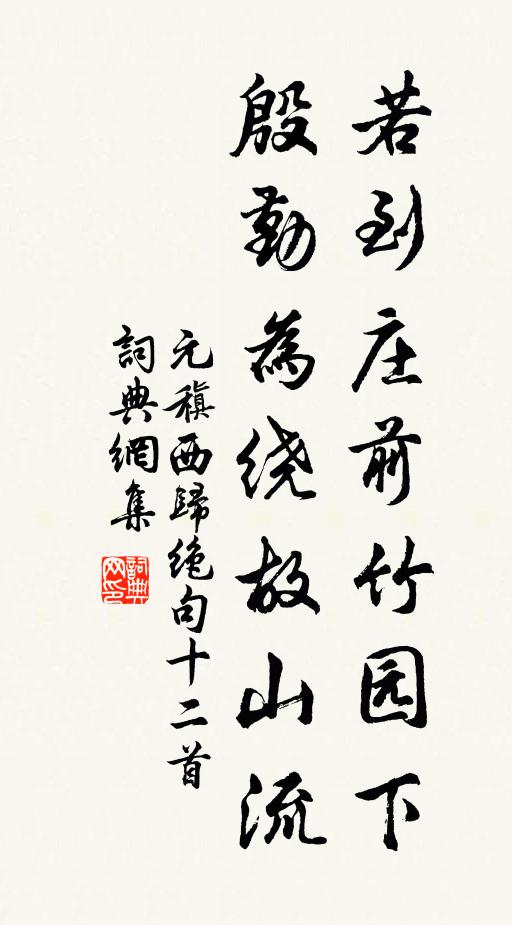 若到庄前竹园下
殷勤為绕故山流
元稹西歸绝句十二首
詞典網集
詞典网印